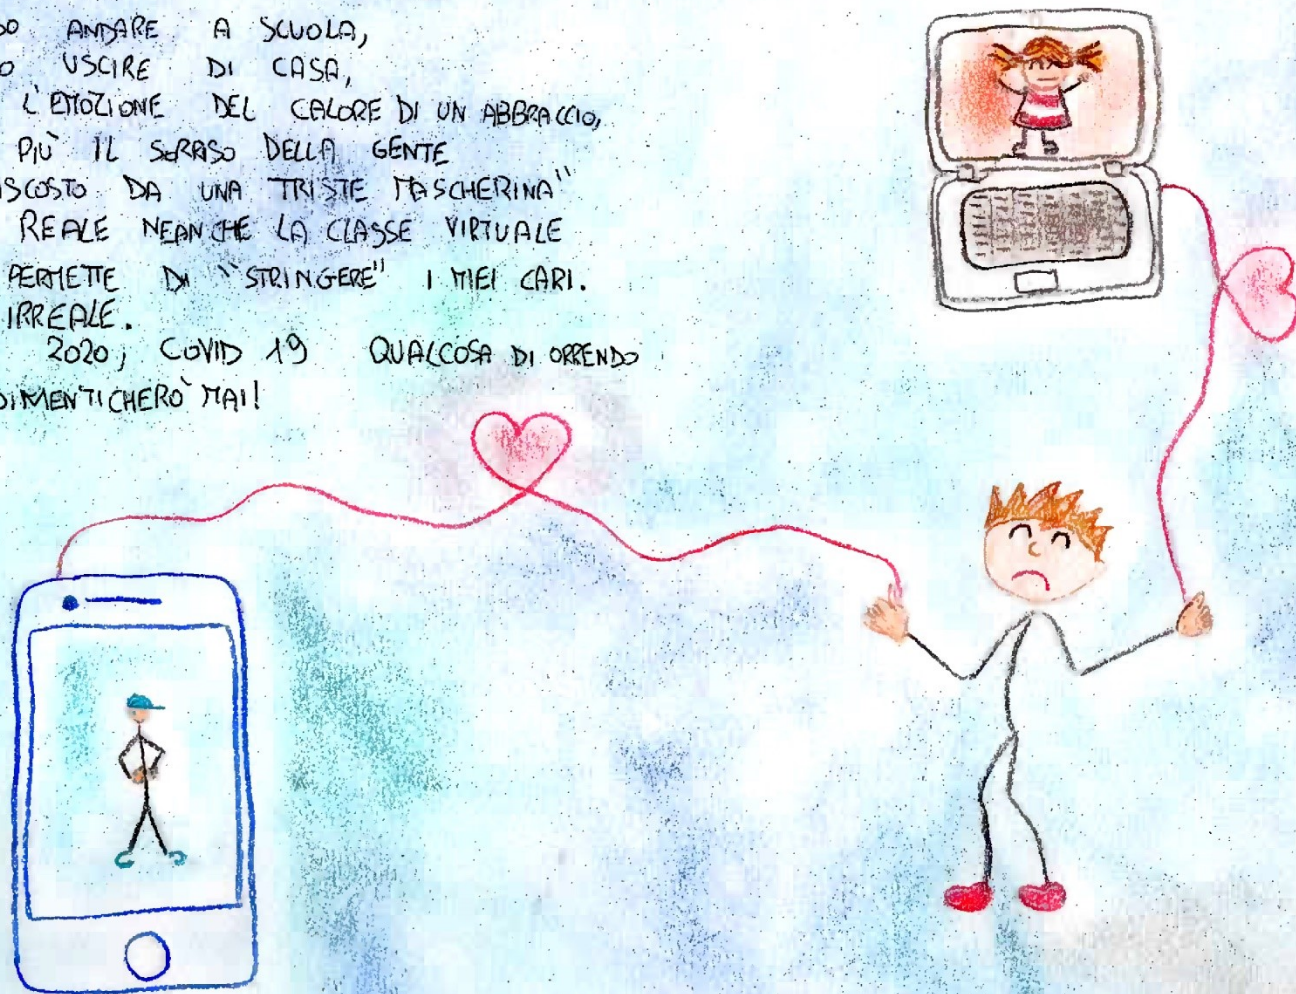 DO ANDARE A SCUOLA,
O USCIRE DI CASA,
L'EMOZIONE DEL CALORE DI UN ABBRACCIO,
PIÙ IL SORRISO DELLA GENTE
ASCOSTO DA UNA TRISTE MASCHERINA"
REALE NEANCHE LA CLASSE VIRTUALE
PERMETTE DI "STRINGERE" I MIEI CARI.
IRREALE.
2020, COVID 19 QUALCOSA DI ORRENDO
DIMENTICHERÒ MAI!